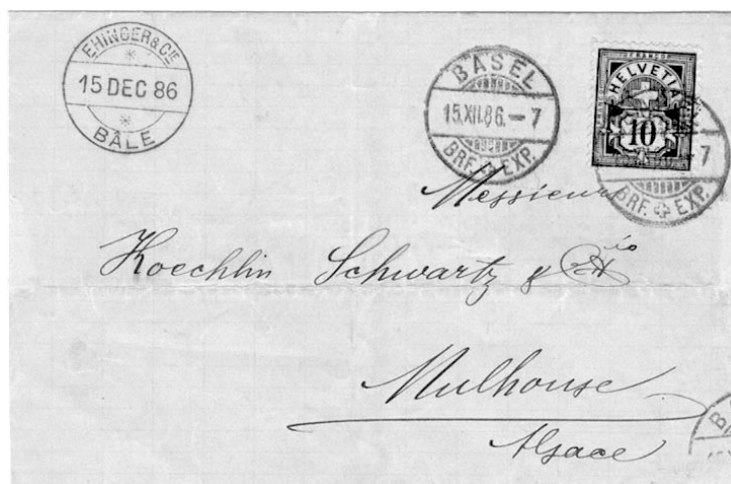 EHINGER & CIE
15 DEC 86
BÂLE
BASEL
15.XII.86.–7
BRF. EXP.
HELVETIA
10
–7
BRF. EXP.
Messieurs
Koechlin Schwartz & Cie
Mulhouse
Alsace
B